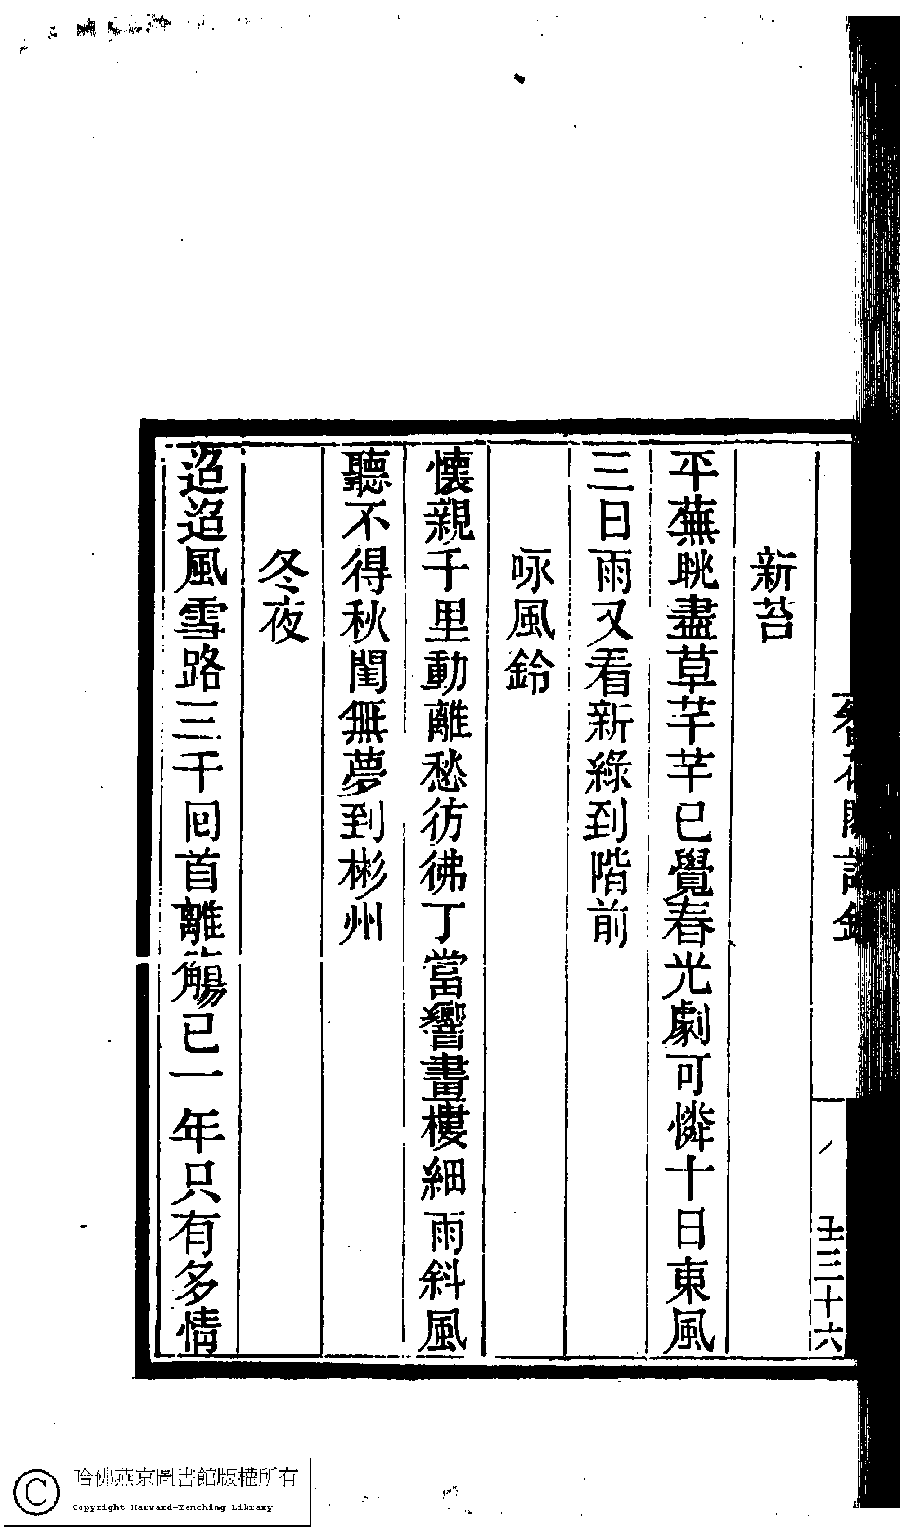 新苔
平蕪眺盡草芊芊已覺春光劇可憐十日東風
三日雨又看新綠到階前
咏風鈴
懷親千里動離愁彷彿丁當響畫樓細雨斜風
聽不得秋閨無夢到彬州
冬夜
迢迢風雪路三千回首離觴已一年只有多情
壬三十六
哈佛燕京圖書館版權所有
Copyright Harvard-Yenching Library